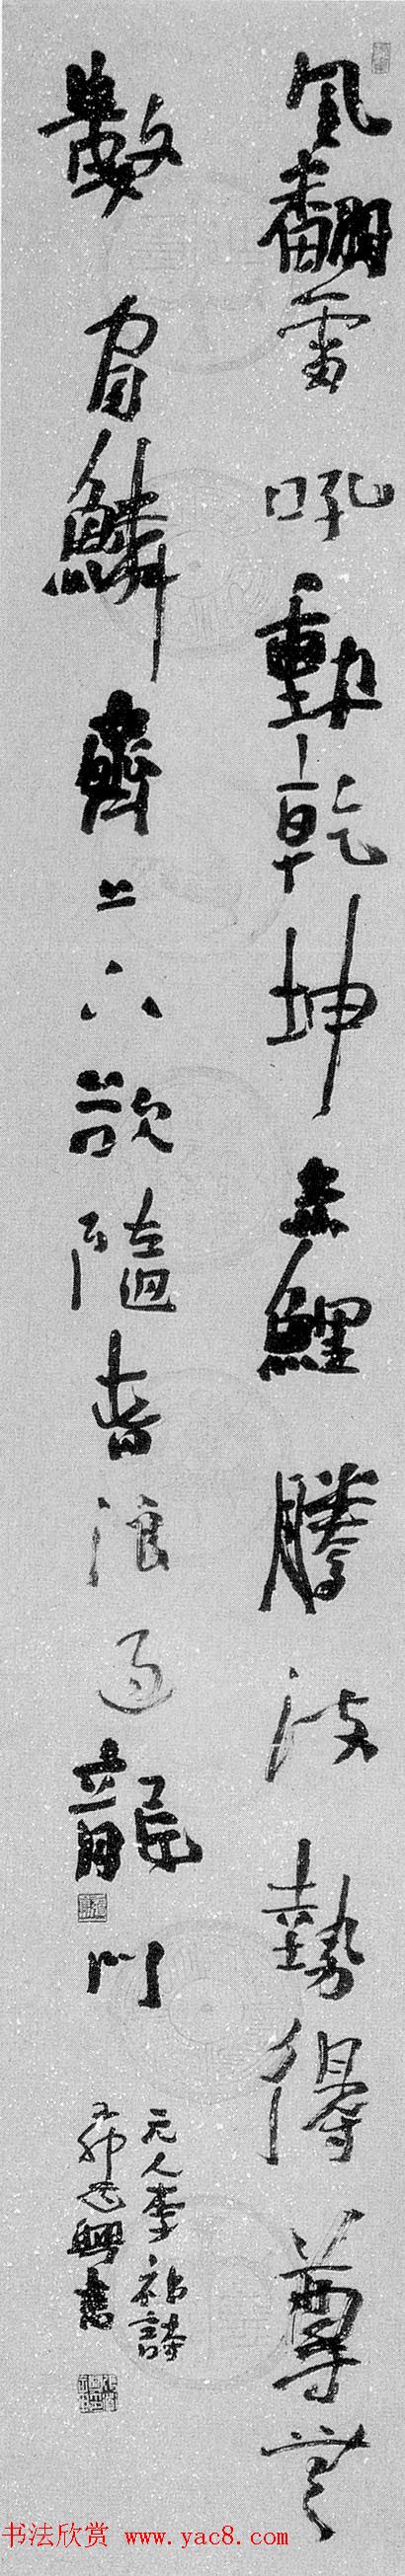 風翻雷吼動乾坤赤鯉騰波勢得尊無
數鱗齊上下欲隨春浪過龍門
元人李祁詩
興書
书法欣赏 www.yac8.com